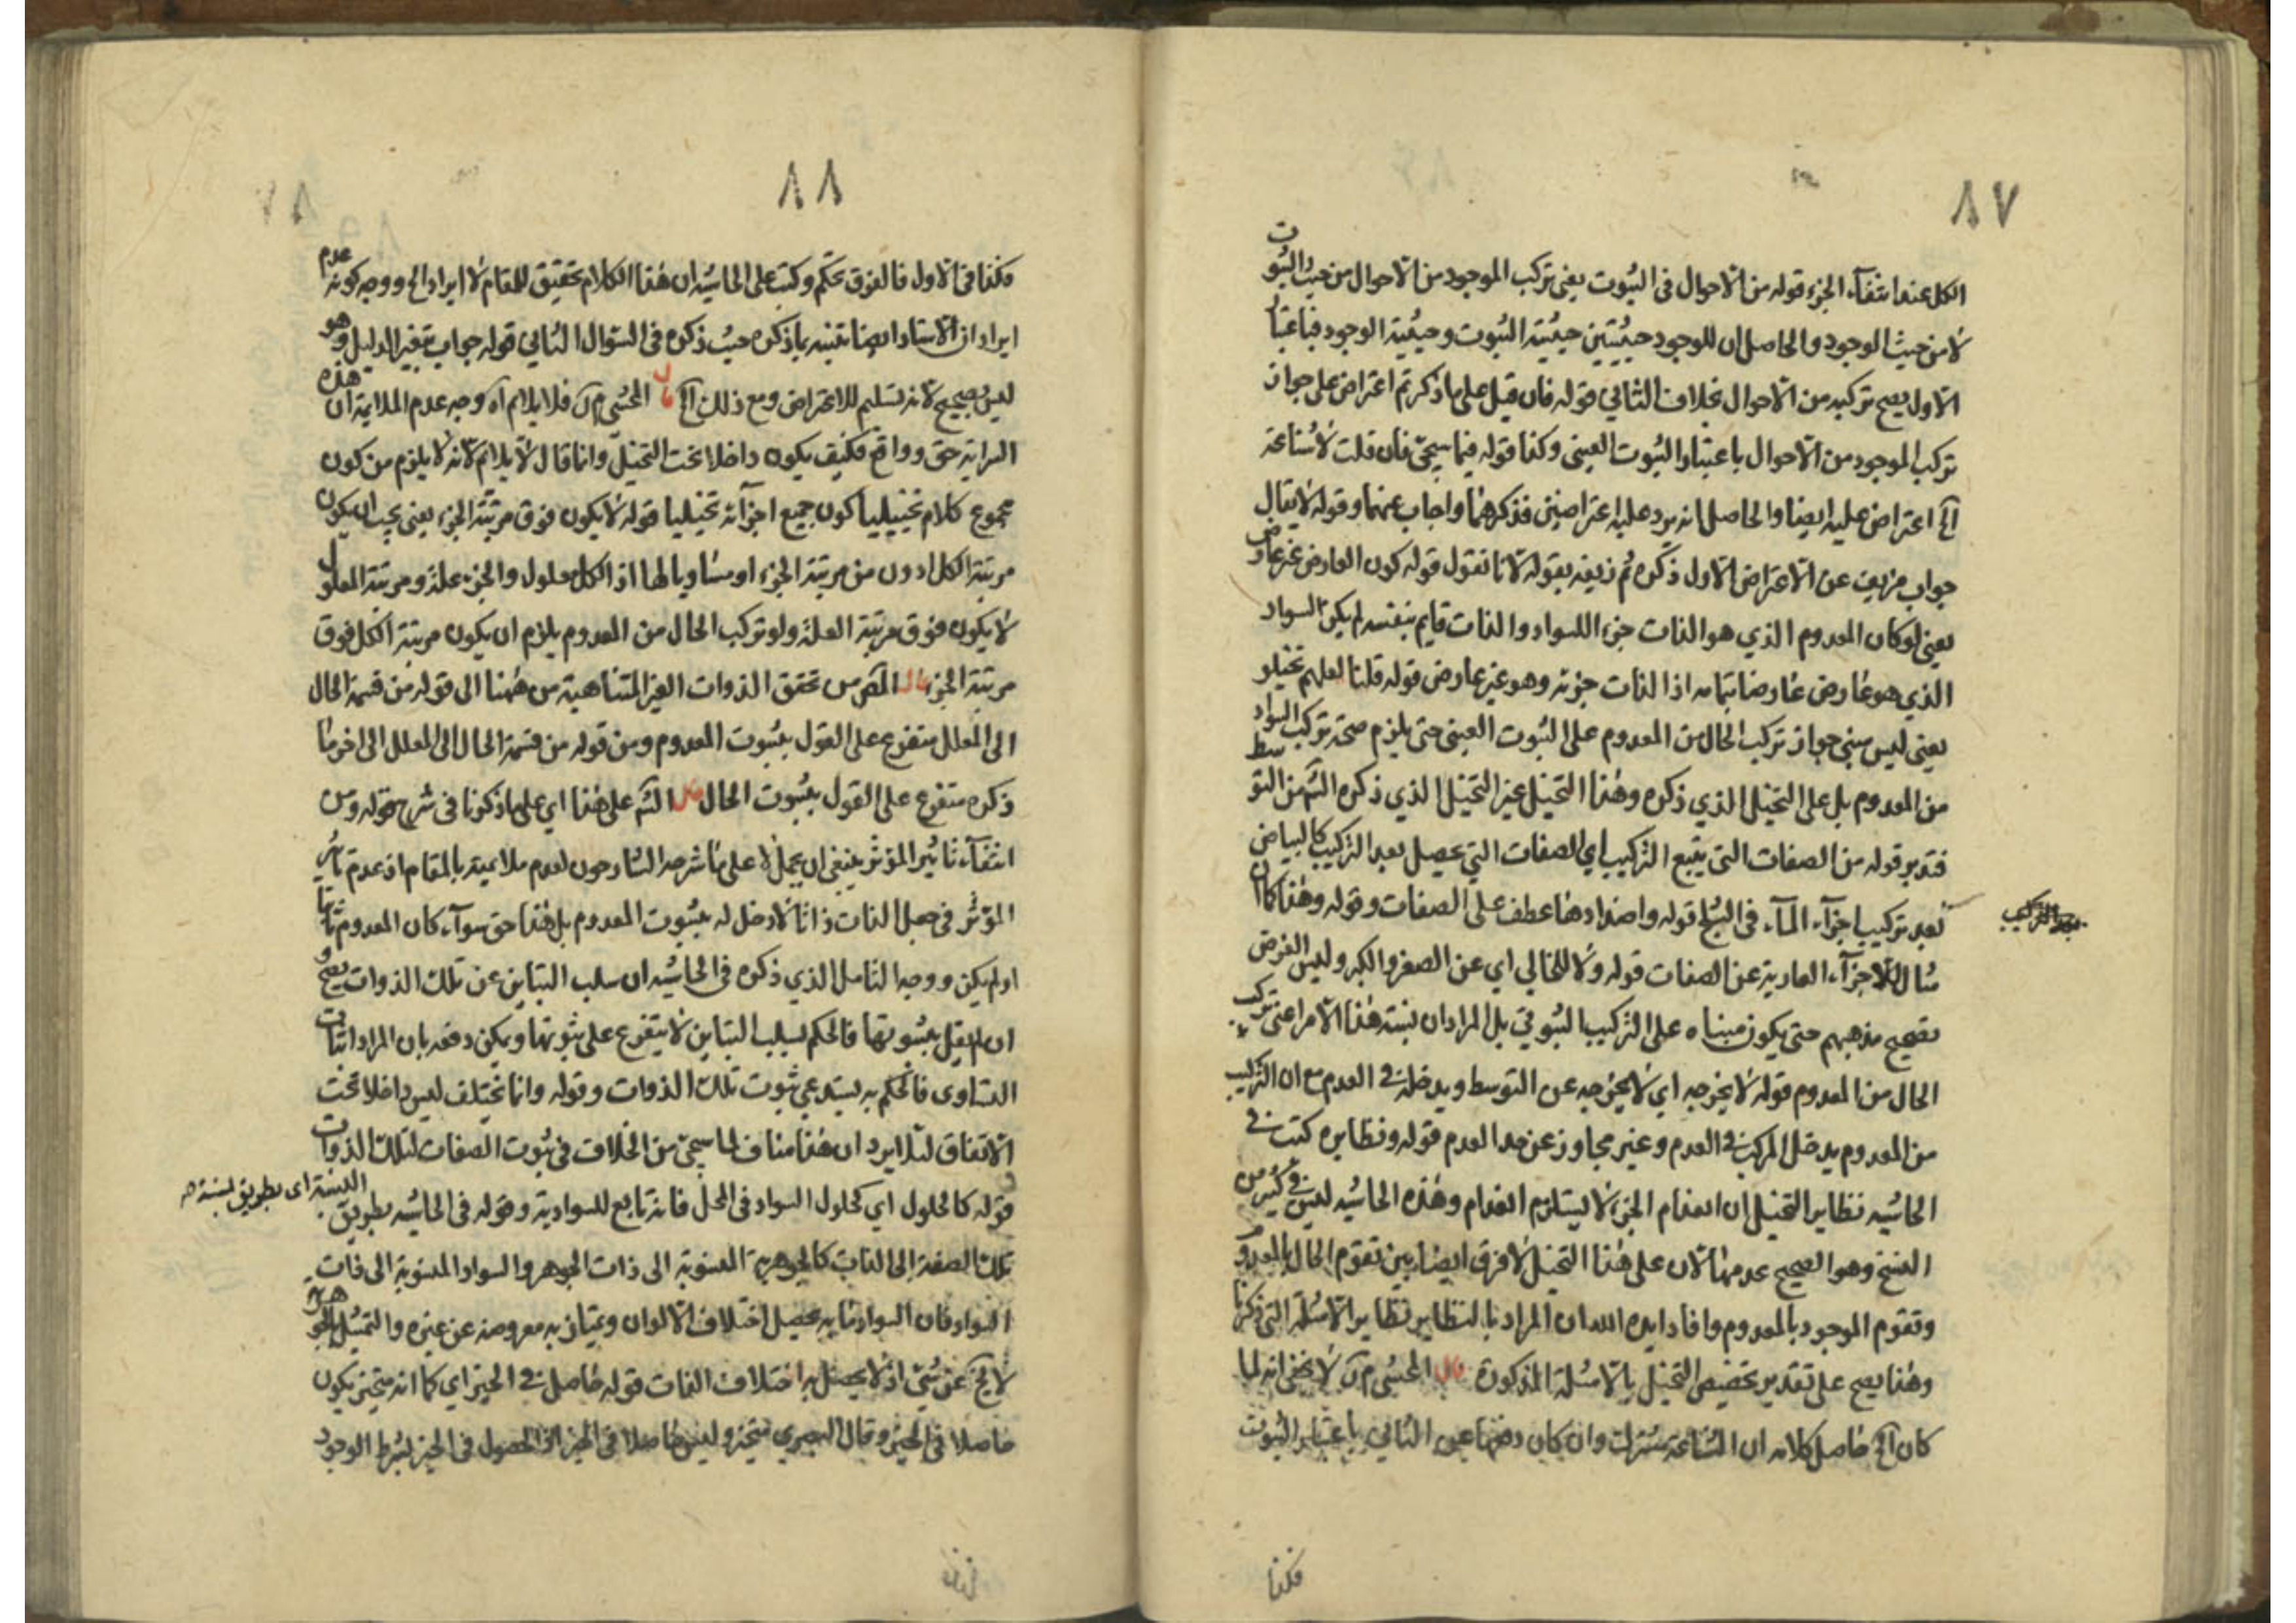 ٨٧
الكل عند انتفاء الجزء قوله من الاحوال فى الثبوت يعنى تركب الموجود من الاحوال من حيث الثبوت
لا من حيث الوجود والحاصل ان للوجود حيثيتين حيثية الثبوت وحيثية الوجود فباعتبار
الاول يصح تركبه من الاحوال بخلاف الثاني قوله فان قيل على ما ذكرتم اعتراض على جواز
تركب الموجود من الاحوال باعتبار الثبوت العينى وكذا قوله فيما سيجئ فان قلت لا شناعة
آه اعتراض عليه ايضا والحاصل انه يرد عليه اعتراضين فذكرهما واجاب عنهما وقوله لا يقال
جواب مزيف عن الاعتراض الاول ذكره ثم زيفه بقوله لانا نقول قوله كون العارض غير عارض
يعنى لو كان المعدوم الذي هو الذات جزء اللسواد والذات قايم بنفسه لم يكن السواد
الذي هو عارض عارضا بتمامه اذا الذات جزئه وهو غير عارض قوله قلنا لعلهم تخيلو
يعنى ليس مبنى جواز تركب الحال من المعدوم على الثبوت العينى حتى يلزم صحة تركب السواد
من المعدوم بل على التخيل الذي ذكره وهذا التخيل غير التخيل الذي ذكره الشم من التوسط
فتدبر قوله من الصفات التى يتبع التركيب اي الصفات التى يحصل بعد التركيب كالبياض
بعد تركيب اجزآء المآء فى الثلج قوله واضدادها عطف على الصفات وقوله وهذا كما ان
مثال للاجزآء العارية عن الصفات قوله ولا للخالي اي عن الصغر والكبر وليس الغرض
تصحيح مذهبهم حتى يكون مبناه على التركيب الثبوتي بل المراد ان نسبة هذا الامر اعنى تركب
الحال من المعدوم قوله لا يخرجه اي لا يخرجه عن التوسط ويدخله فى العدم مع ان التركيب
من المعدوم يدخل المركب فى العدم وغير مجاوز عن حد العدم قوله ونظايره كتب فى
الحاشيه نظاير التخيل ان انعدام الجزء لا يستلزم انعدام وهذه الحاشيه ليس فى كثير من
النسخ وهو الصحيح عدمها لان على هذا التخيل لا فرق ايضا بين تقوم الحال بالمعدوم
وتقوم الموجود بالمعدوم وافاد ايده الله ان المراد بالنظاير نظاير الامثلة التى ذكرنا
وهذا يصح على تقدير تخصيص التخيل بالامثلة المذكورة قال المحشي م ن لا يخفى انه لما
كان آه حاصل كلامه ان الشناعة مشترك وان كان دفعها عن الثاني باعتبار الثبوت
فكذا
٨٨
فكذا فى الاول فالفرق تحكم وكتب على الحاشيه ان هذا الكلام تحقيق للمقام لا ايراد الخ ووجه كونه عدم
ايراد ان الاستاد ايضا بذكره حيث ذكره فى السؤال الثاني قوله جواب بتغير الدليل وهو
ليس بصحيح لانه تسليم للاعتراض ومع ذلك آه قال المحشي م ن فلا يلايم آه وجه عدم الملايمة ان هذه
السراية حق وواقع فكيف يكون داخلا تحت التخيل وانما قال لا يلايم لانه لا يلزم من كون
مجموع كلام تخييليا كون جميع اجزآئه تخييليا قوله لا يكون فوق مرتبة الجزء يعنى يجب ان يكون
مرتبة الكل ادون من مرتبة الجزء او مساويا لها اذ الكل معلول والجزء علة ومرتبة المعلول
لا يكون فوق مرتبة العلة ولو تركب الحال من المعدوم يلزم ان يكون مرتبة الكل فوق
مرتبة الجزء قال المص من تحقق الذوات الغير المتناهية من ههنا الى قوله من قسمة الحال
الى المعلل متفرع على القول بثبوت المعدوم ومن قوله من قسمة الحال الى المعلل الى اخر ما
ذكره متفرع على القول بثبوت الحال قال الشم على هذا اي على ما ذكرنا فى شرح قوله ومن
انتفآء تاثير المؤثر ينبغى ان يحمل لا على ما شرحه الشارحون لعدم ملايمته بالمقام اذ عدم تاثير
المؤثر فى جعل الذات ذاتا لا دخل له بثبوت المعدوم بل هذا حق سوآء كان المعدوم ثابتا
او لم يكن ووجه التامل الذي ذكره فى الحاشيه ان سلب التباين عن تلك الذوات يصح و
ان لم يقل بثبوتها فالحكم بسلب التباين لا يتفرع على ثبوتها ويمكن دفعه بان المراد اثبات
التساوى فالحكم به يستدعي ثبوت تلك الذوات وقوله وانما يختلف ليس داخلا تحت
الاتفاق لئلا يرد ان هذا مناف لما سيجئ من الخلاف فى ثبوت الصفات لتلك الذوات
قوله كالحلول اي كحلول السواد فى المحل فانه تابع للسوادية وقوله فى الحاشيه بطريق النسبة اى بطريق نسبة
تلك الصفة الى الذات كالجوهرية المنسوبة الى ذات الجوهر والسواد المنسوبة الى ذات
السواد فان السواد ما به يحصل اختلاف الالوان ويمتاز به معروضه عن غيره والتمثيل بالجوهرية
لا يخ عن شئ اذ لا يحصل به اختلاف الذات قوله حاصل فى الحيز اي كما انه متحيز يكون
حاصلا فى الحيز وقال البصري متحيز وليس حاصلا فى الحيز اذ الحصول فى الحيز بشرط الوجود